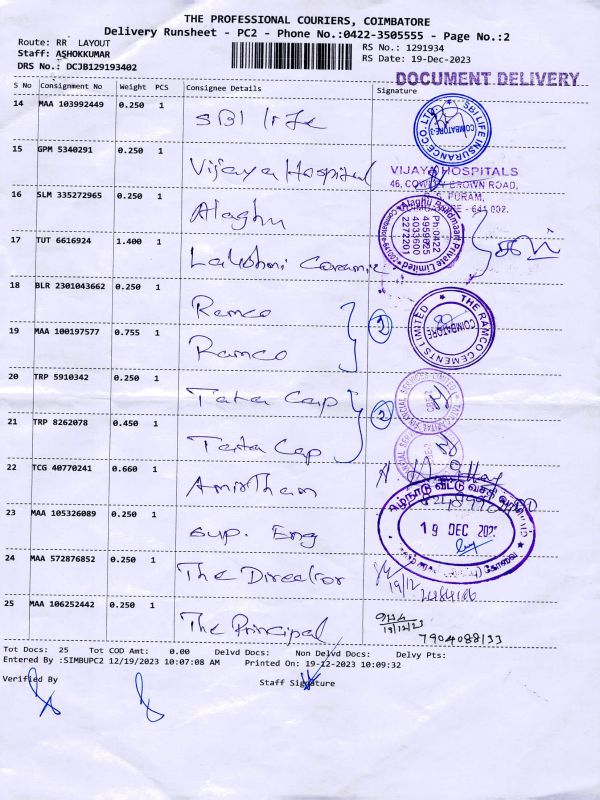 THE PROFESSIONAL COURIERS, COIMBATORE
Delivery Runsheet - PC2 - Phone No.:0422-3505555 - Page No.:2
Route: RR LAYOUT
RS No.: 1291934
Staff: ASHOKKUMAR
RS Date: 19-Dec-2023
DRS No.: DCJB129193402
DOCUMENT DELIVERY
S No Consignment No Weight PCS Consignee Details Signature
14 MAA 103992449 0.250 1 SBI life
SBI LIFE INSURANCE CO. LTD. COIMBATORE-3
15 GPM 5340291 0.250 1 Vijaya Hospital
VIJAYA HOSPITALS
46, COWLEY BROWN ROAD,
R. S. PURAM,
COIMBATORE - 641 002.
16 SLM 335272965 0.250 1 Alaghu
Private Limited
Ph:0422
4959825
4033600
2272201
17 TUT 6616924 1.400 1 Lakshmi Ceramic
18 BLR 2301043662 0.250 1 Ramco
2
THE RAMCO CEMENTS LIMITED COIMBATORE
19 MAA 100197577 0.755 1 Ramco
20 TRP 5910342 0.250 1 Tata Cap
2
21 TRP 8262078 0.450 1 Tata Cap
22 TCG 40770241 0.660 1 Amirtham
23 MAA 105326089 0.250 1 Sup. Eng
தமிழ்நாடு வீட்டு வசதி வாரியம்
19 DEC 202
கோவை
24 MAA 572876852 0.250 1 The Director
19/12
25 MAA 106252442 0.250 1 The Principal
19/12/23
7904088133
Tot Docs: 25 Tot COD Amt: 0.00 Delvd Docs: Non Delvd Docs: Delvy Pts:
Entered By :SIMBUPC2 12/19/2023 10:07:08 AM Printed On: 19-12-2023 10:09:32
Verified By
Staff Signature